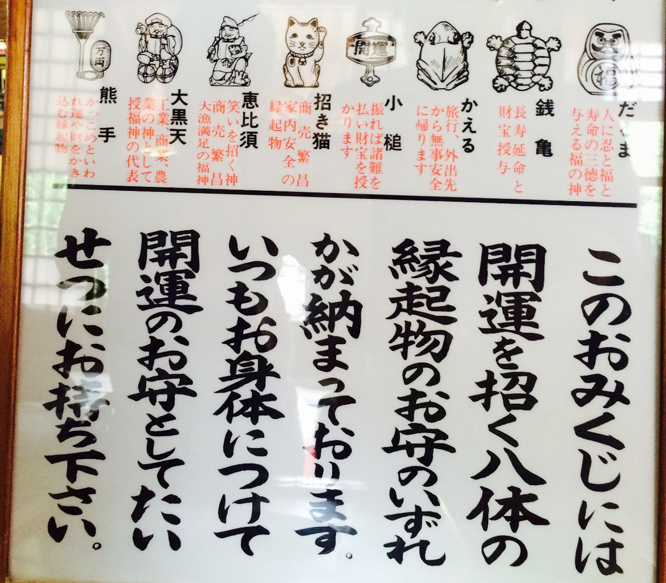 だるま
人に忍と福と
寿命の三徳を
与える福の神
銭亀
長寿延命と
財宝授与
かえる
旅行、外出先
から無事安全
に帰ります
小槌
開運
振れば諸難を
払い財宝を授
かります
招き猫
商売繁昌
家内安全の
縁起物
恵比須
笑いを招く神
商売繁昌
大漁満足の福神
大黒天
工業、商業、農
業の神として
授福神の代表
熊手
万両
かっこめといわ
れ運と財をかき
込む縁起物
このおみくじには
開運を招く八体の
縁起物のお守のいずれ
かが納まっております。
いつもお身体につけて
開運のお守としてたい
せつにお持ち下さい。